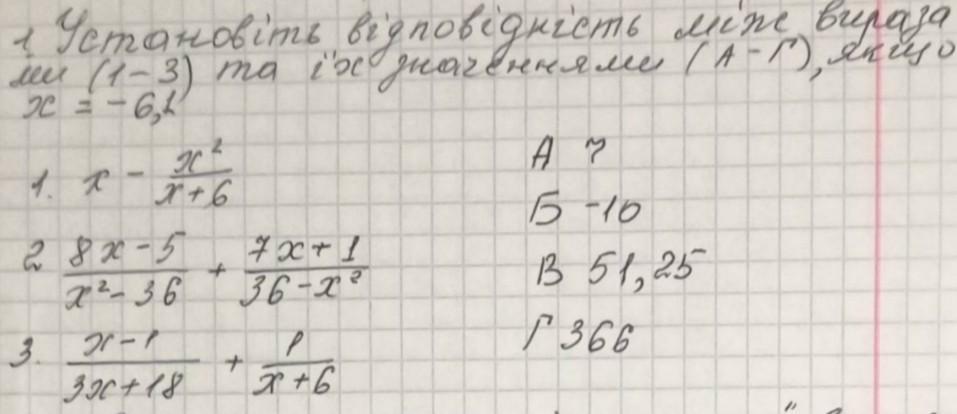 1 Установіть відповідність між вираза
ми (1-3) та їх значеннями (А-Г), якщо
x = -6,1
1. x - x²/(x+6)
А 7
Б -10
2 (8x-5)/(x²-36) + (7x+1)/(36-x²)
В 51,25
3. (x-1)/(3x+18) + 1/(x+6)
Г 366